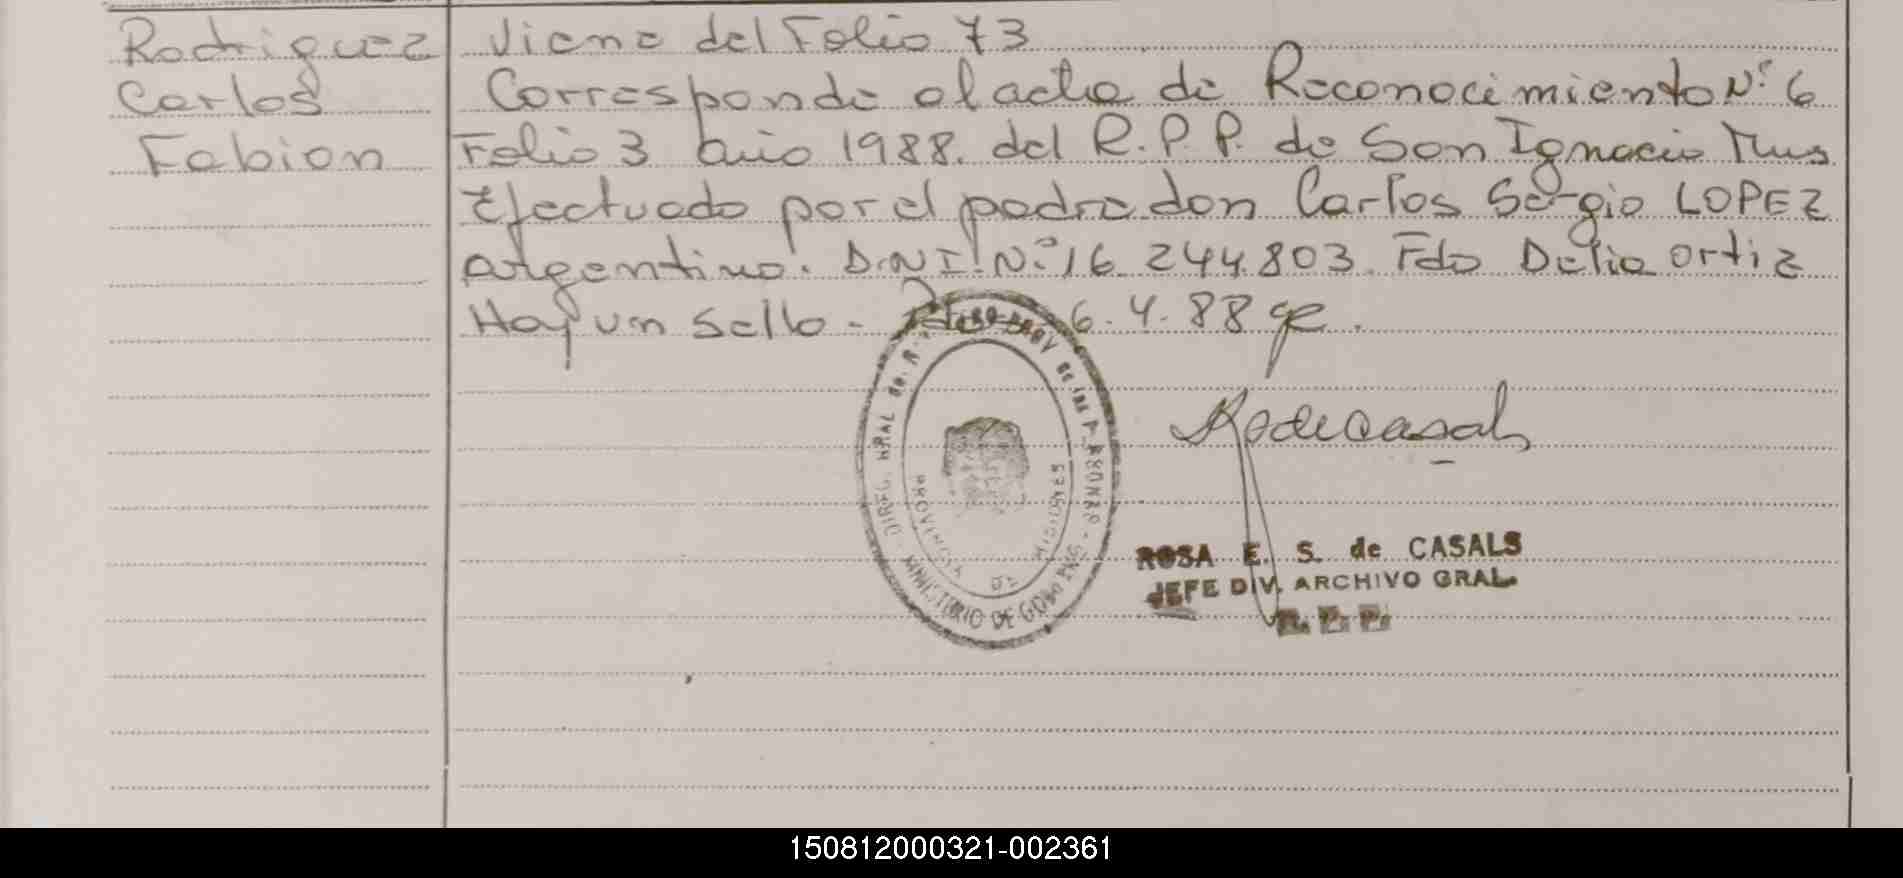 Rodriguez
Carlos
Fabian
Viene del Folio 73
Corresponde al acta de Reconocimiento Nº 6
Folio 3 año 1988. del R.P.P. de San Ignacio Mns
Efectuado por el padre don Carlos Sergio LOPEZ
argentino. D.N.I. Nº 16.244.803. Fdo Delia Ortiz
Hay un sello. - 6.4.88
DIREC. GRAL de R. de las PERSONAS
MINISTERIO DE GOBIERNO
PROVINCIA DE MISIONES
ROSA E. S. de CASALS
JEFE DIV. ARCHIVO GRAL.
R. P. P.
150812000321-002361